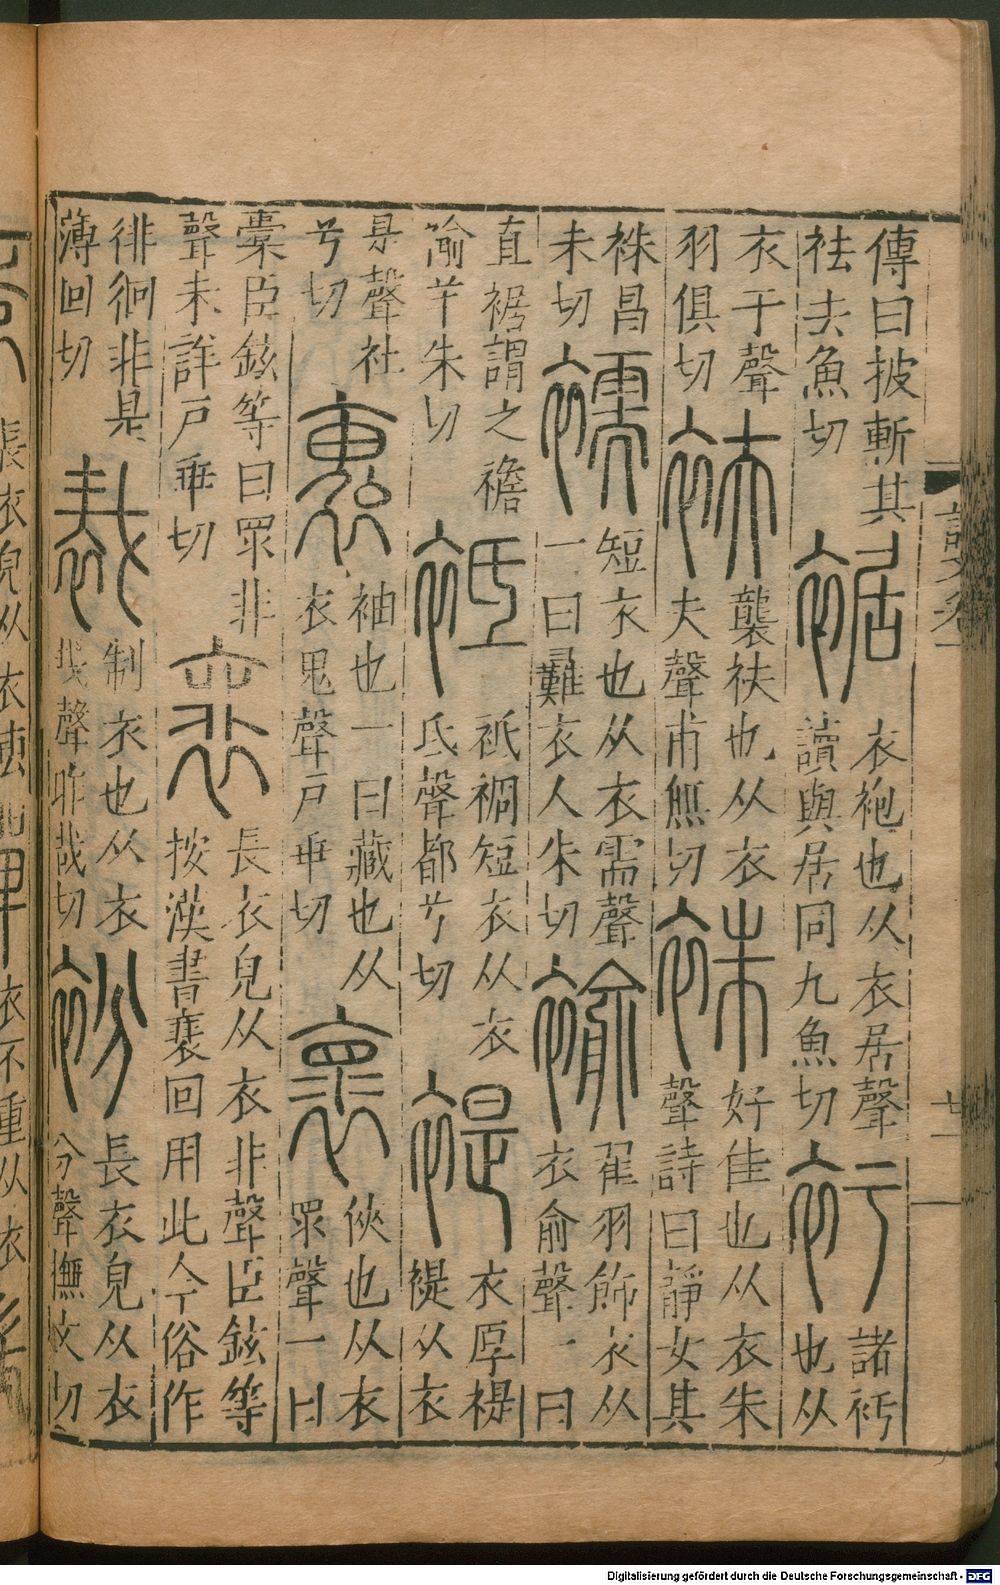 傳曰披斬其袪去魚切裾衣袍也从衣居聲讀與居同九魚切衧諸衧也从
衣于聲羽俱切衭襲衭也从衣夫聲甫無切袾好佳也从衣朱聲詩曰靜女其
袾昌朱切襦短衣也从衣需聲一曰難衣人朱切褕翟羽飾衣从衣俞聲一曰
直裾謂之襜褕羊朱切袛袛裯短衣从衣氐聲都兮切褆衣厚褆褆从衣
是聲社兮切褢袖也一曰藏也从衣鬼聲戶乖切褱俠也从衣眔聲一曰
橐臣鉉等曰眔非聲未詳戶乖切裵長衣皃从衣非聲臣鉉等按漢書裵回用此今俗作
徘徊非是薄回切裁制衣也从衣𢦏聲昨哉切衯長衣皃从衣分聲撫文切
Digitalisierung gefördert durch die Deutsche Forschungsgemeinschaft - DFG